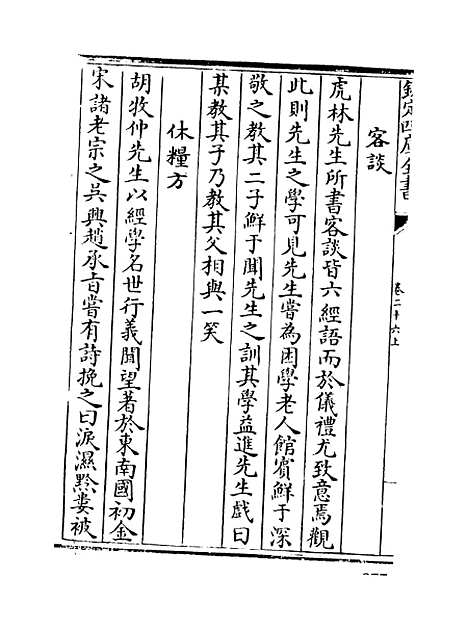 欽定四庫全書
卷二十六上
客談
虎林先生所書客談皆六經語而於儀禮尤致意焉觀
此則先生之學可見先生嘗為困學老人館賓鮮于深
敬之教其二子鮮于聞先生之訓其學益進先生戲曰
某教其子乃教其父相與一笑
休糧方
胡牧仲先生以經學名世行義聞望著於東南國初金
宋諸老宗之吳興趙承旨嘗有詩挽之曰淚濕黔婁被